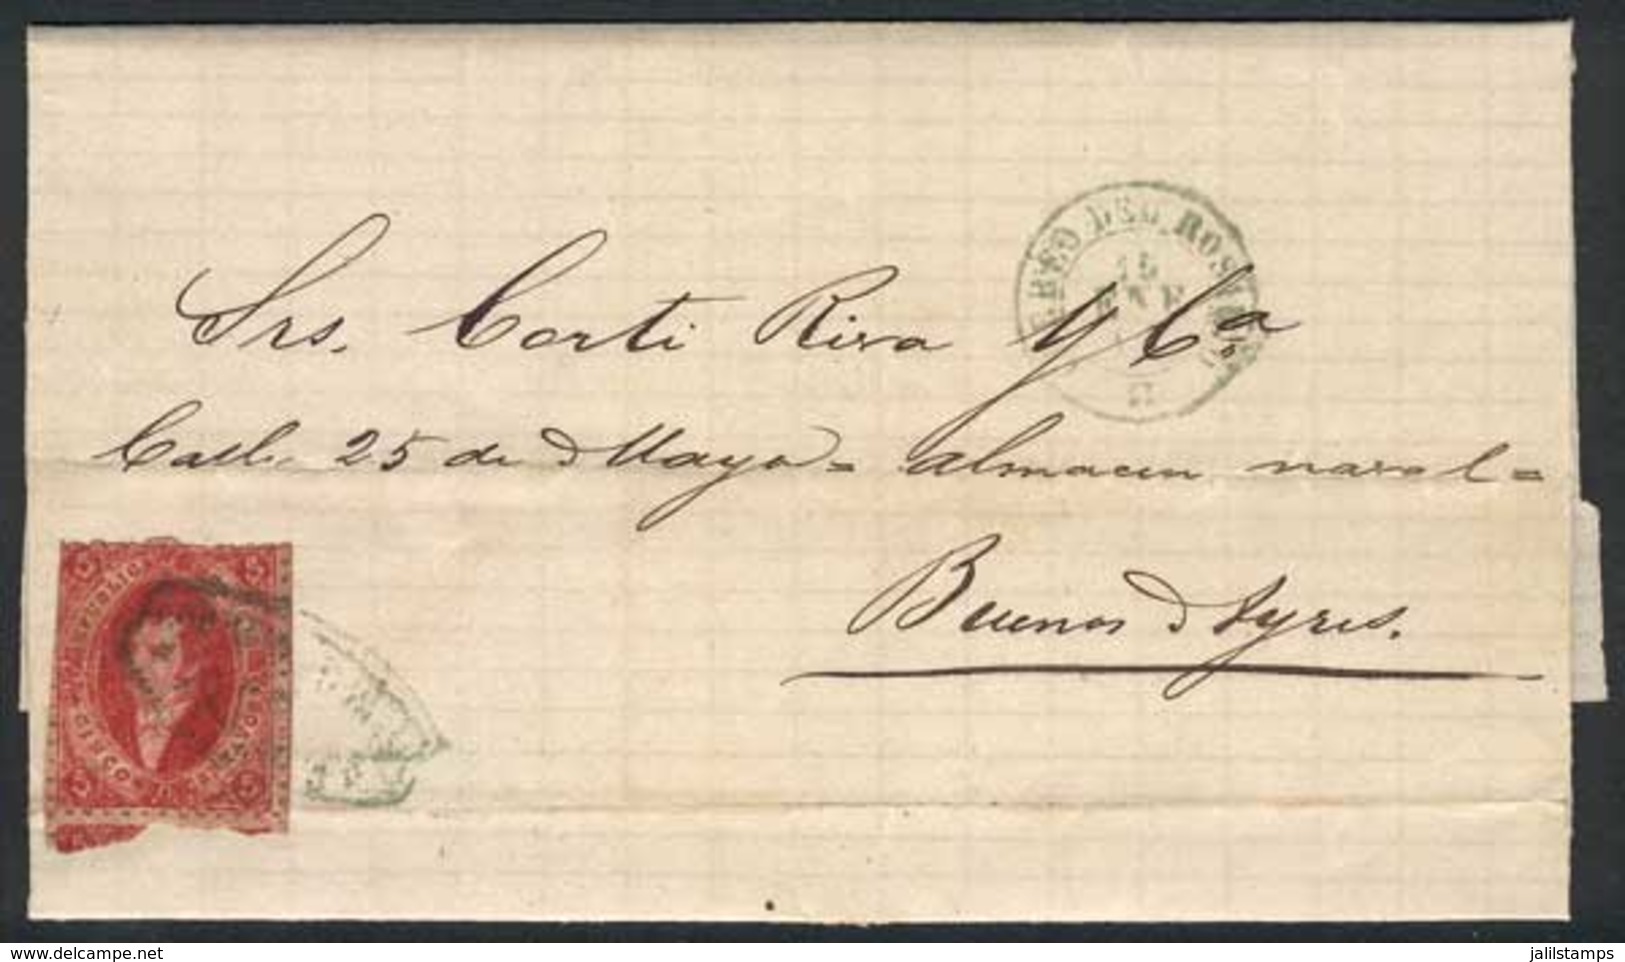 Srs. Corti Riva y Cª
Calle 25 de Mayo = almacen naval =
Buenos Ayres.
DEL ROSARIO
15
ENE
5 5
REPUBLICA
CINCO CENTAVOS
5 5
delcampe.net
jalilstamps